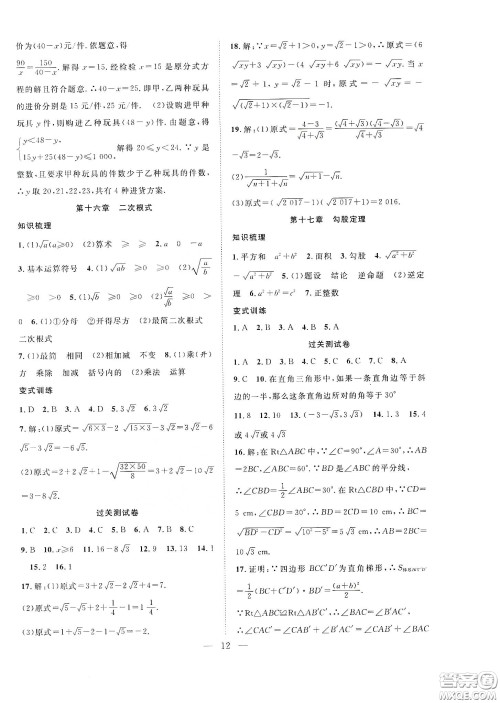 价为(40－x)元/件.依题意,得
90/x＝150/(40－x).解得 x＝15.经检验 x＝15 是原分式方
程的解且符合题意.∴40－x＝25.即甲,乙两种玩具
的进价分别是 15 元/件,25 元/件.(2)设购进甲种
玩具 y 件,则购进乙种玩具(48－y)件.由题意,得
{y＜48－y,
15y＋25(48－y)≤1 000, 解得 20≤y＜24.∵y是
整数,且要求甲种玩具的件数少于乙种玩具的件数,
∴y取 20,21,22,23,共有 4 种进货方案.
第十六章 二次根式
知识梳理
1.(1)√a(a≥0) (2)算术 ≥ ≥ 2.a a －a
3.基本运算符号 4.(1)√ab ≥0 ≥0 (2)√(a/b)
≥0 ＞0 5.(1)√a·√b ≥0 ≥0 (2)√a/√b ≥0
＞0 6.(1)①分母 ②开得尽方 (2)最简二次根式
二次根式
7.(1)最简 相同 (2)相加减 不变 8.(1)乘(开)
方 乘除 加减 括号 (2)乘法公式
变式训练
1.D 2.B 3.A 4.D 5.3√2 6.2√3
7.解:(1)原式＝√(6×3)－2√(15×3)－3√2＝3√2－
6√5－3√2＝－6√5.
(2)原式＝2√2－2√2＋3－√((32×50)/8)＝3－√(200)
＝3－8√2.
过关测试卷
1.C 2.C 3.C 4.D 5.B 6.B 7.C 8.C
9.B 10.x≥6 11.16－8√3 12.＞ 13.4 14.1
15.2 16.1
17.解:(1)原式＝3＋2√2－2＝1＋2√2.
(2)原式＝√5－√5＋2＋1/4＝2＋1/4.
(3)原式＝√5－2√5＝－√5.
18.解:∵x＝√2＋1＞0,y＝√2－1＞0,∴原式＝(6
√xy＋3√xy)－(4√xy＋6√xy)＝－√xy.
当 x＝√2＋1,y＝√2－1 时,原式＝－√((√2＋1)(√2－1))
＝－1.
19.解:(1)原式＝(4－3)/(√4＋√3)＝((√4＋√3)(√4－√3))/(√4＋√3)
＝√4－√3.
(2)1/(√(n＋1)＋√n)＝√(n＋1)－√n.
(3)原式＝(√(2 017)－1)(√(2 017)＋1)＝2 016.
第十七章 勾股定理
知识梳理
1.平方和 a²＋b² 2.面积 3.勾股 4.√(a²＋b²)
5.(1)题设 结论 逆命题 (2)正确 逆定
理 6.a²＋b²＝c² 7.正整数
变式训练
1.B 2.D 3.合格 4.A
过关测试卷
1.A 2.D 3.C 4.C 5.B 6.D 7.A 8.D
9.C 10.在直角三角形中,如果一条直角边等于斜
边的一半,那么这条直角边所对的角等于30°
11.8 12.10 13.(－3－√3,3√3) 14.1.5 15.4
或4√7
16.解:∵在 Rt△ABC 中,∠C＝90°,∠A＝30°,∴AB
＝2BC,∠ABC＝60°.∵BD 是∠ABC 的平分线,
∴∠CBD＝1/2∠ABC＝30°.∴BD＝2CD＝10 cm,
＝5 cm.
∴BC＝√(BD²－CD²)＝√(10²－5²)＝5√3 cm.∴AB＝
10√3 cm.
17.证明:∵四边形 BCC′D′为直角梯形,∴S
＝1/2(BC＋C′D′)·BD′＝(a＋b)²/2.
∵Rt△ABC≌Rt△AB′C′,∴∠BAC＝∠B′AC′.
∴∠CAC′＝∠CAB′＋∠B′AC′＝∠CAB′＋∠BAC
12